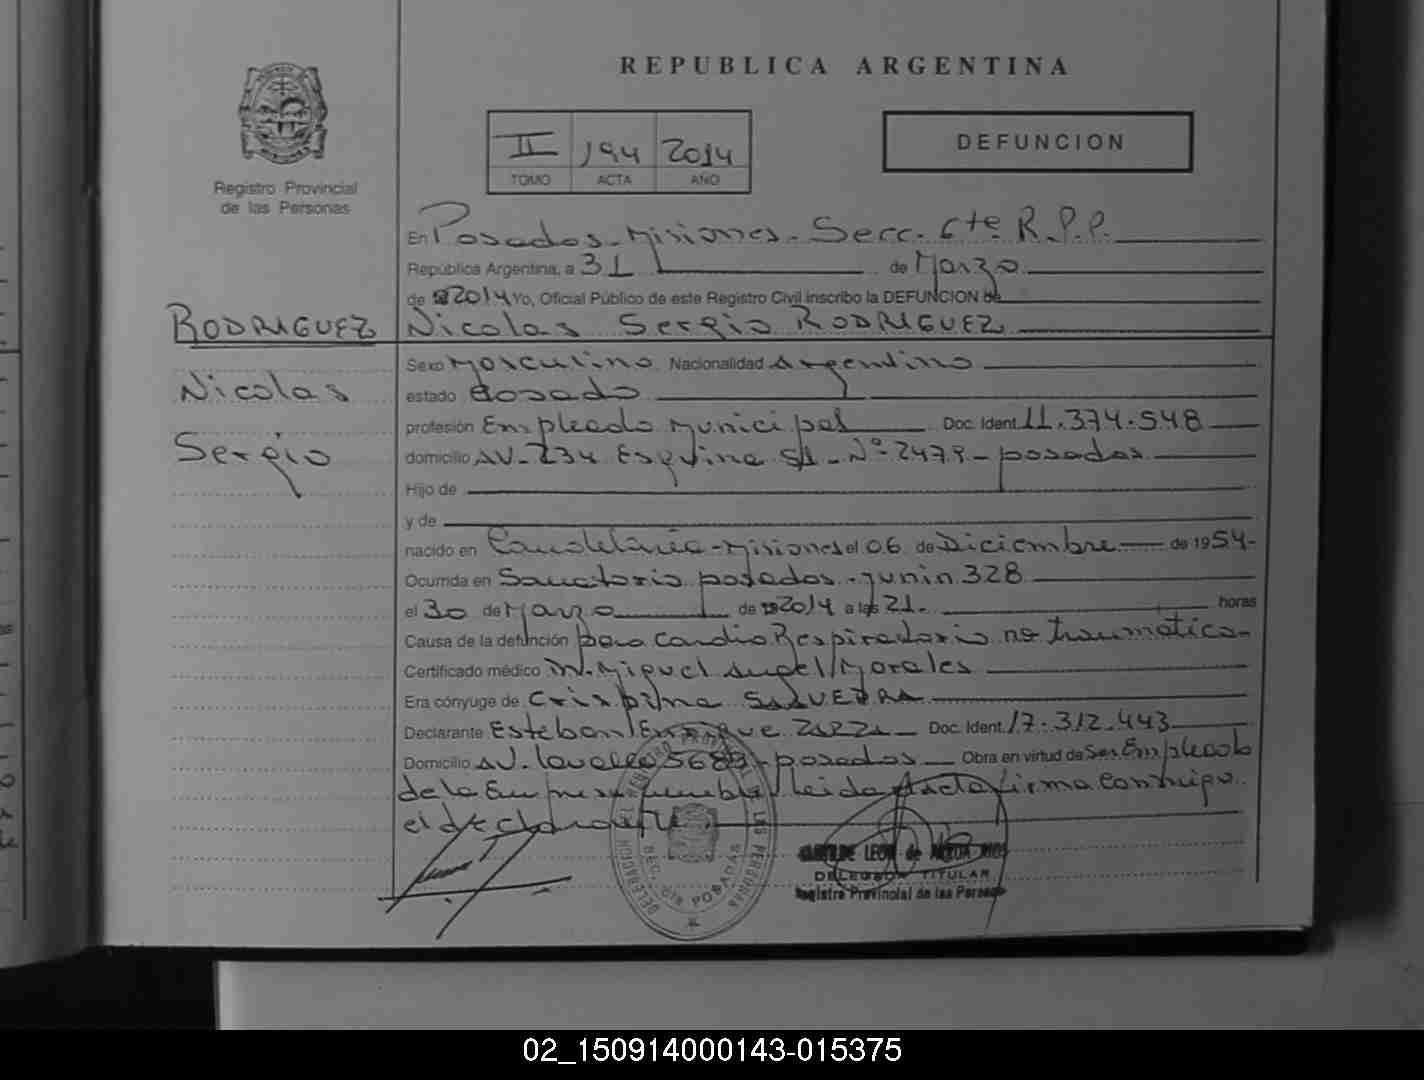 REPUBLICA ARGENTINA
Registro Provincial
de las Personas
II 194 2014
TOMO ACTA AÑO
DEFUNCION
En Posadas - Misiones - Secc. 6te R.P.P.
República Argentina, a 31 de Marzo
de 2014 Yo, Oficial Público de este Registro Civil inscribo la DEFUNCION de
RODRIGUEZ Nicolas Sergio RODRIGUEZ
Nicolas
Sergio
Sexo Masculino Nacionalidad Argentino
estado Casado
profesión Empleado Municipal Doc. Ident. 11.374.548
domicilio AV. 234 Esquina S1 - Nº 2479 - posadas
Hijo de
y de
nacido en Candelaria - Misiones el 06 de Diciembre de 1954-
Ocurrida en Sanatorio posadas - Junin 328
el 30 de Marzo de 2014 a las 21. horas
Causa de la defunción paro Cardio Respiratorio no traumatico-
Certificado médico Dr. Miguel Angel Morales
Era cónyuge de Crispina
Declarante Esteban Enrique Doc. Ident. 17.312.443
Domicilio AV. Lavalle 5683 - posadas Obra en virtud de Ser Empleado
de la Empresa Leida Acta firma Conmigo
el declarante
DELEGACION REGISTRO PROVINCIAL DE LAS PERSONAS
SEC. 6ta POSADAS
LEON de
DELEGADA TITULAR
Registro Provincial de las Personas
02_150914000143-015375